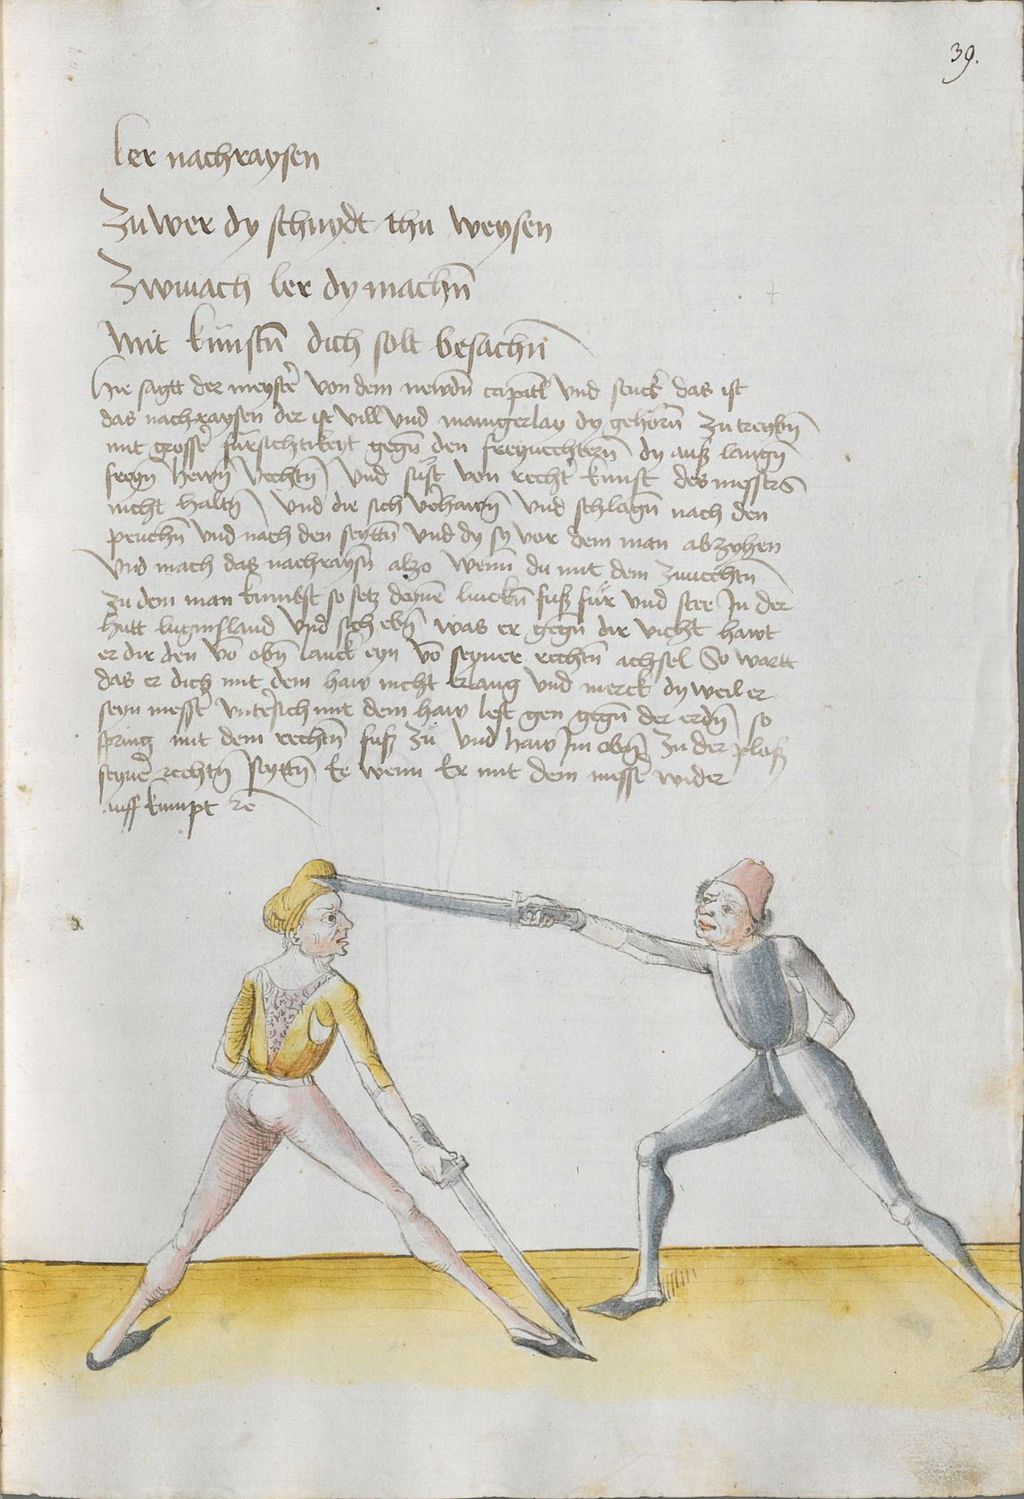 39.
ler nachraysen
Zu wer dy schnydt thu weysen
Zwinach ler dy machn̄
Mit künstn̄ dich solt besachn̄
Hie sagtt der meystė von dem newdn̄ capitl vnd stuck das ist
das nachraysen der ist vill vnd mānigerlay dy gehörn̄ zu treybn̄
mit grossė fürsichtikeyt gegn̄ den freyuechtern̄ dy auß langn̄
freyn̄ hewn̄ vechtn̄ vnd sust von rechtė kunst des messers
nicht haltn̄ vnd die sich v̇hawn̄ vnd schlagn̄ nach den
peuchn̄ vnd nach den seyttn̄ vnd dy sy vor dem man abzyhen
Vnd mach das nachraysn̄ alzo wenn̄ du mit dem zuuechtn̄
zu dem man kumbst so setz deynē linckn̄ fuß für vnd stee In der
hutt luginsland vnd sich ebn̄ was er gegn̄ dir vicht hawt
er dir den vō obn̄ lanck eyn vō seyner rechtn̄ achsel So wartt
das er dich mit dem haw nicht erlang vnd merck dy weil er
seyn messė vntėsich mit dem haw lest gen gegn̄ der erdn̄ so
spring mit dem rechtn̄ fuß zu vnd haw Im obn̄ zu der plöß
seynė rechtn̄ seyttn̄ Ee wenn Er mit dem messė wider
auff kumpt ⁊c